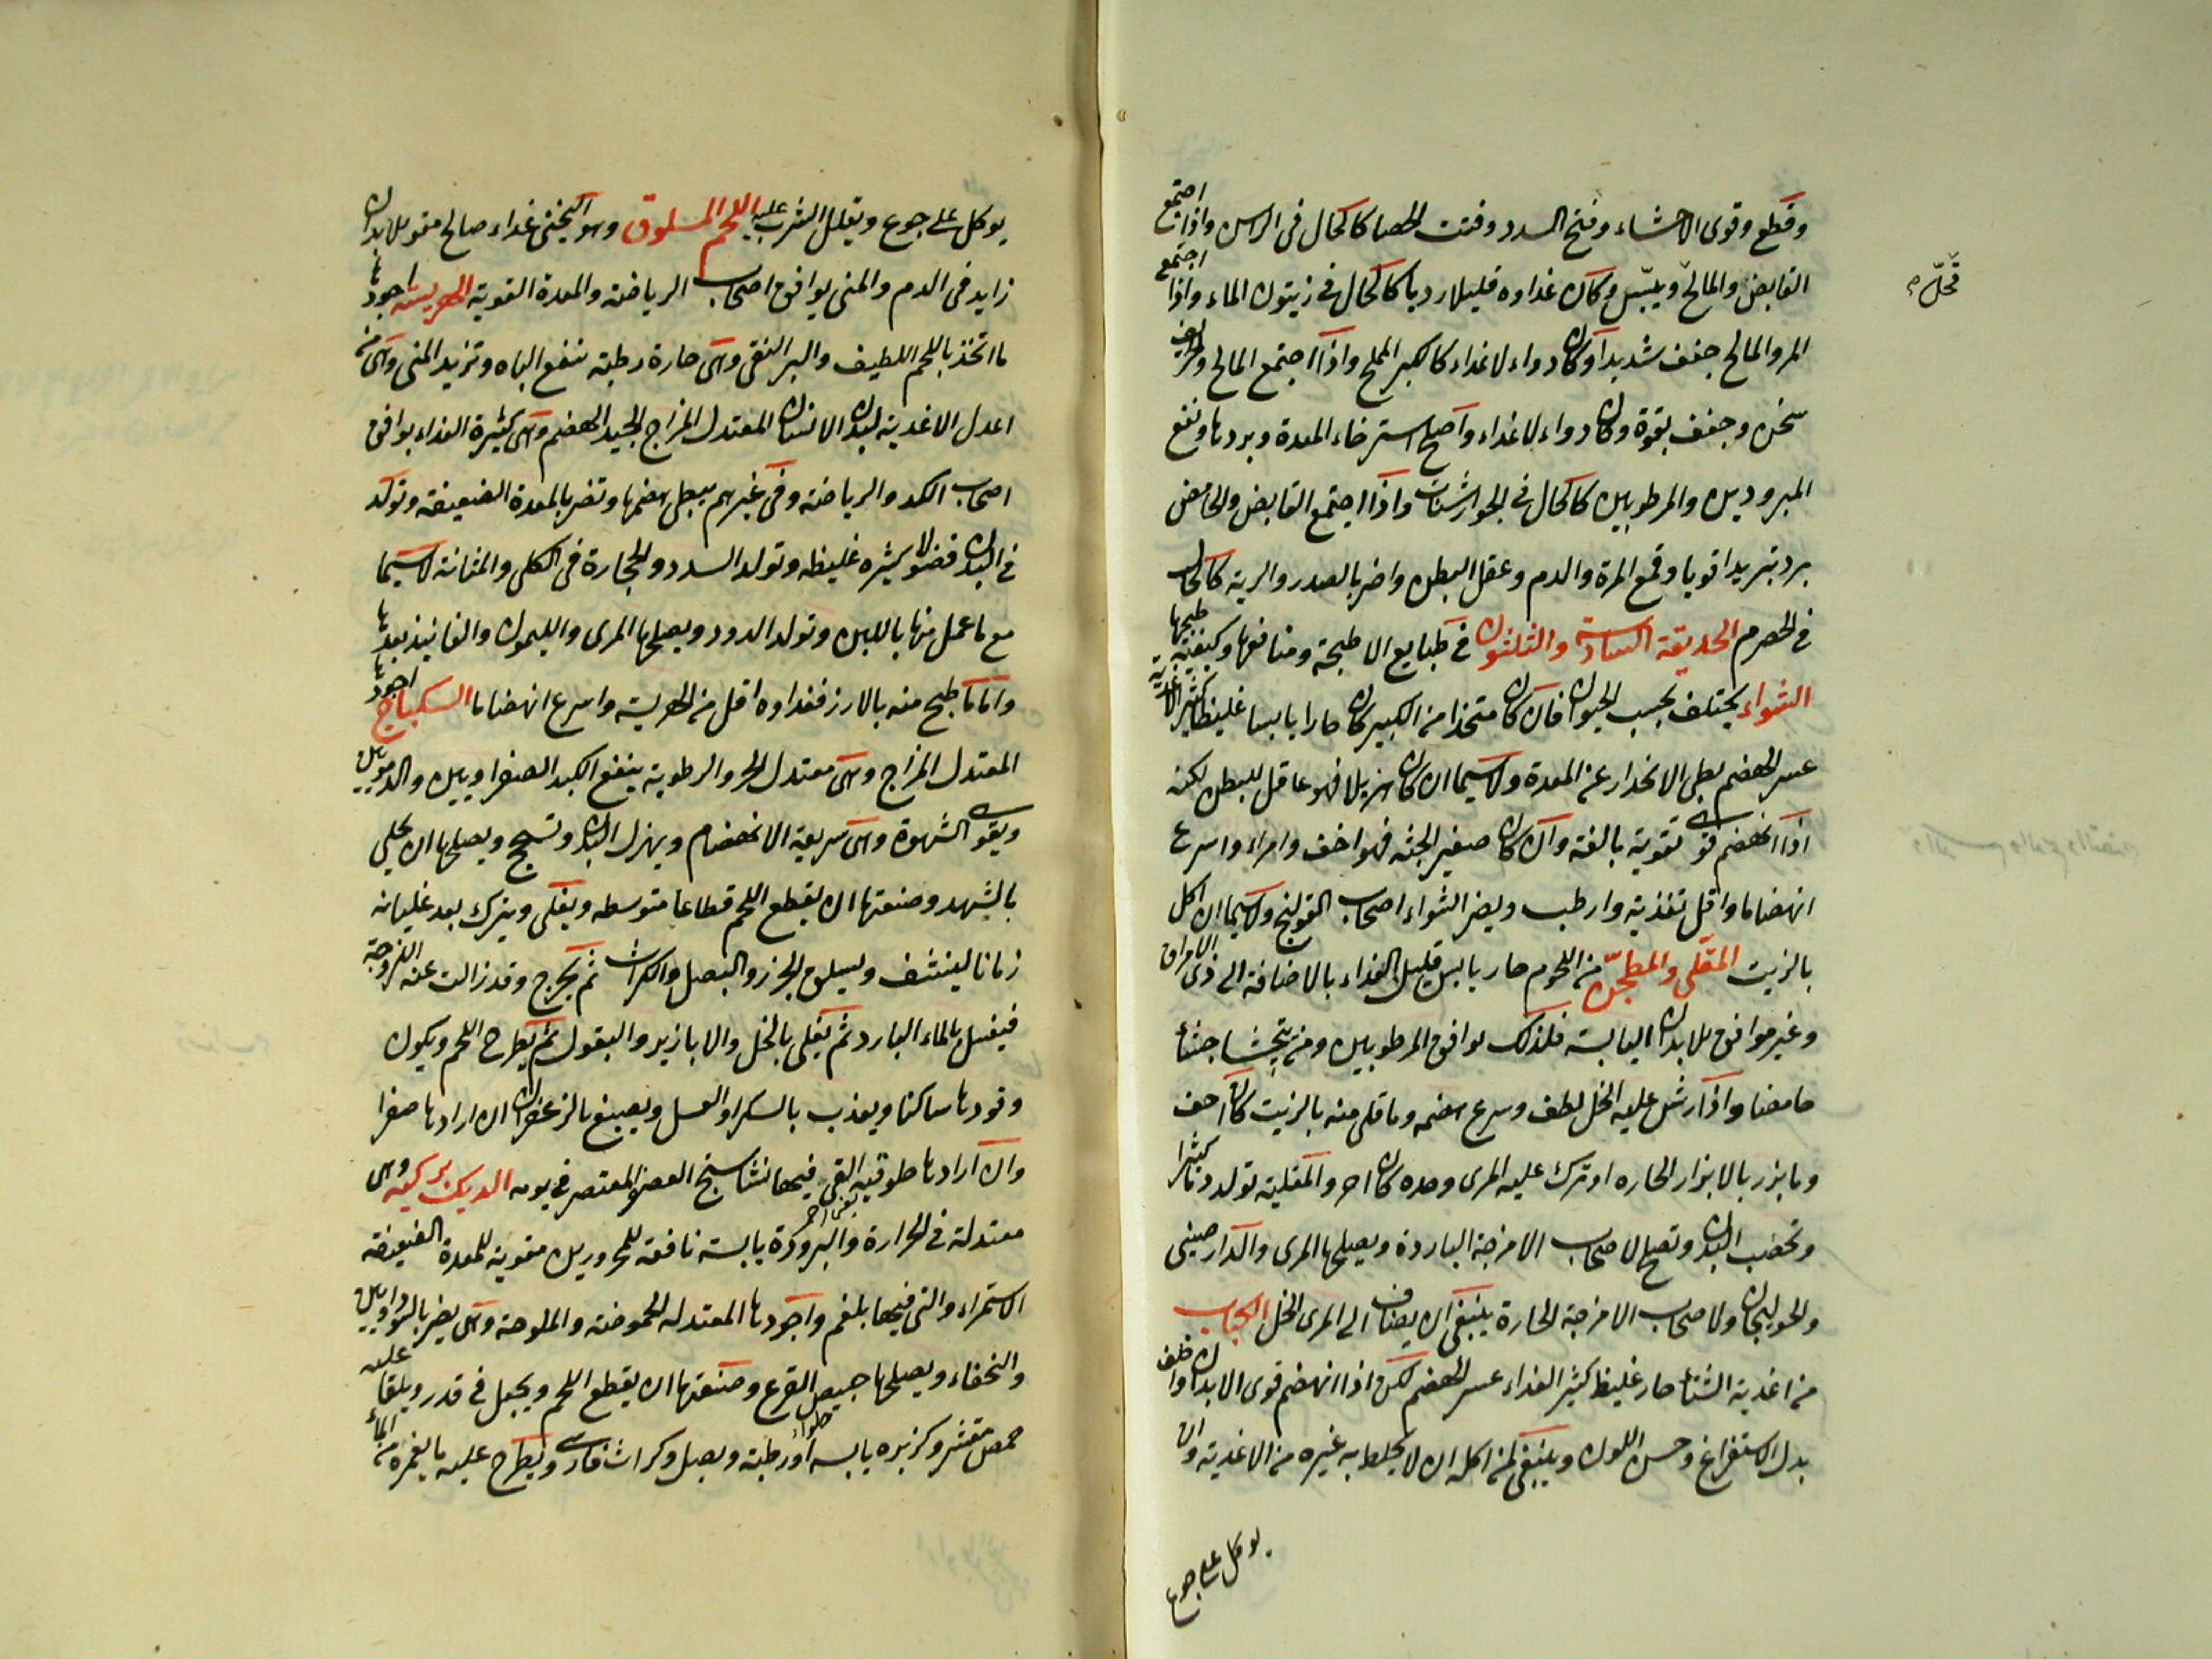 وقطع وقوى الاحشاء وفتح السدد وفتت الحصا كالحال فى الراس واذا اجتمع
القابض والمالح ويبس وكان غذاوه قليلا رديا كالحال فى زيتون الماء واذا اجتمع
المر والمالح جفف شديدا وكان دواء لا غذاء كالكبر المملح واذا اجتمع المالح والحريف
سخن وجفف بقوة وكان دواء لا غذاء واصلح استرخاء المعدة وبردها ونفع
المبرودين والمرطوبين كالحال فى الجوارشنات واذا اجتمع القابض والحامض
برد تبريدا قويا وقمع المرة والدم وعقل البطن واضر بالصدر والرية كالحال
فى الحصرم الحديقة السادسة والثلثون فى طبايع الاطبخة ومنافعها وكيفية طبخها
الشواء يختلف بحسب الحيوان فان كان متخذا من الكبير كان حارا يابسا غليظا كثير الاغذية
عسر الهضم بطى الانحدار عن المعدة ولاسيما ان كان هزيلا فهو عاقل للبطن لكنه
اذا انهضم قوى تقوية بالغة وان كان صغير الجثه فهو اخف وامراء واسرع
انهضاما واقل تغذية وارطب ويضر الشواء اصحاب القولنج ولاسيما ان اكل
بالزيت المقلى والمطجن من اللحوم حار يابس قليل الغذاء بالاضافة الى ذى الامراق
وغير موافق للابدان اليابسة فلذلك يوافق المرطوبين ومن يتجشا جشاء
حامضا واذا رش عليه الخل لطف وسرع هضمه وما قلى منه بالزيت كان اخف
وما بزر بالابزار الحاره او ترك عليه المرى وحده كان احر والمقليه تولد دما كثيرا
وتخصب البدن وتصلح لاصحاب الامزجة الباردة ويصلحها المرى والدارصينى
والخولنجان ولاصحاب الامزجة الحارة ينبغى ان يضاف الى المرى الخل الكباب
من اغذية الشتاء حار غليظ كثير الغذاء عسر الهضم لكن اذا انهضم قوى الابدان واخلف
بدل الاستفراغ وحسن اللون وينبغى لمن اكله ان لا يخلط به غيره من الاغذية وان
يوكل على جوع
يوكل على جوع ويقلل الشرب عليه اللحم المسلوق وهو اليخنى غذاء صالح مقو للابدان
زايد فى الدم والمنى يوافق اصحاب الرياضة والمعدة القوية الهريسه اجودها
ما اتخذ باللحم اللطيف والبر النقى وهى حارة رطبة تنفع الباه وتزيد المنى وهى من
اعدل الاغذية لبدن الانسان المعتدل المزاج الجيد الهضم وهى كثيرة الغذاء يوافق
اصحاب الكد والرياضة وفى غيرهم يبطى هضمها وتضر بالمعدة الضعيفة وتولد
فى البدن فضولا كثيره غليظه وتولد السدد والحجارة فى الكلى والمثانة لاسيما
مع ما عمل منها باللبن وتولد الدود ويصلحها المرى والليمون والفانيذ بعدها
واما ما طبخ منه بالارز فغذاوه اقل من الهريسة واسرع انهضاما السكباج اجودها
المعتدل المزاج وهى معتدل الحر والرطوبة ينفع الكبد الصفراويين والدمويين
ويقوى الشهوة وهى سريعة الانهضام ويهزل البدن وتسحج ويصلحها ان يحلى
بالشهد وصنعتها ان يقطع اللحم قطاعا متوسطه ويغلى ويترك بعد غليانه
زمانا لينشف ويسلق الجزر والبصل والكراث ثم يخرج وقد زالت عنه اللزوجة
فيغسل بالماء البارد ثم يغلى بالخل والابازير والبقول ثم يطرح اللحم ويكون
وقودها ساكنا ويعذب بالسكر او العسل ويصبغ بالزعفران ان ارادها صفرا
وان ارادها طوقيه القى فيها نشاسنج العصفر المعتصر فى يومه الديك بركيه وهى
معتدلة فى الحرارة والبرودة يابسة نافعة للمحرورين مقوية للمعدة الضعيفة
الاستمراء والتى فيها بلغم واجودها المعتدله الحموضة والملوحة وهى يضر بالسوداويين
والنحفاء ويصلحها خبيص القرع وصنعتها ان يقطع اللحم ويجعل فى قدر ويلقا عليه
حمص مقشر وكزبره يابسه او رطبة وبصل وكراث فارسى ويطرح عليه ما يغمره من الماء